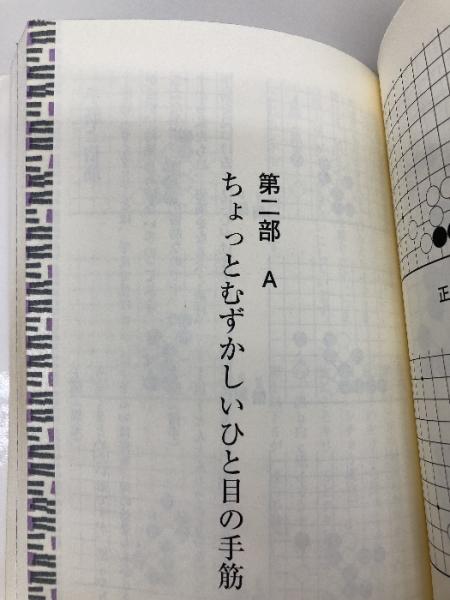 第二部 A
ちょっとむずかしいひと目の手筋
正